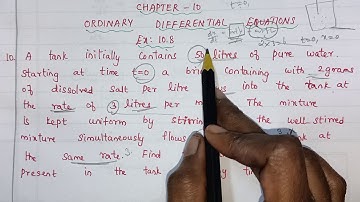 CHAPTER - 10
ORDINARY DIFFERENTIAL EQUATIONS
Ex: 10.8
t=0, x=0
10. A tank initially contains 50 litres of pure water.
starting at time t=0 a brine containing with 2 grams
of dissolved salt per litre into the tank at
the rate of 3 litres per The mixture
is kept uniform by the well stirred
mixture simultaneously flows tank at
the same rate. Find
present in the tank any